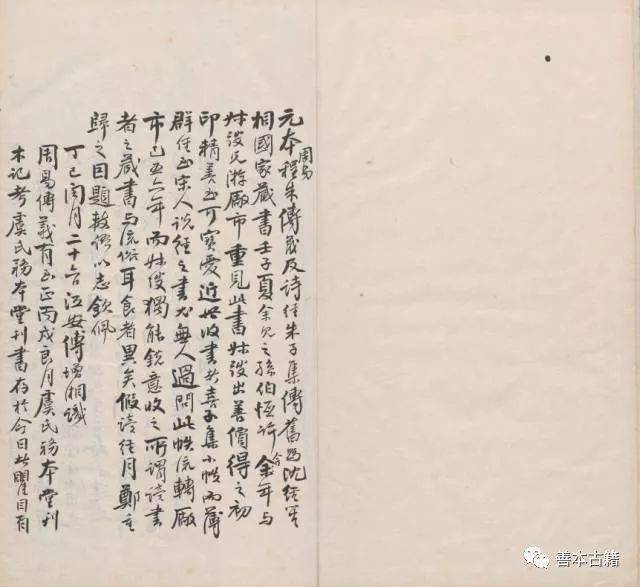 元本周易程朱傳義及詩經朱子集傳舊為沈經笙
相國家藏書壬子夏余見之孫伯恆許今年與
叔弢兄游廠市重見此書叔弢出善價得之初
印精美至可寶愛近世收書者喜子集小帙而薄
群經至宋人說經之書尤無人過問此帙流轉廠
市已五六年而叔弢獨能銳意收之所謂讀書
者之藏書與流俗耳食者異矣假讀經月鄭重
歸之因題數語以志欽佩
丁巳閏月二十六日江安傅增湘識
周易傳義有至正丙戌良月虞氏務本堂刊
木記考虞氏務本堂刊書存於今日者瞿目有
善本古籍